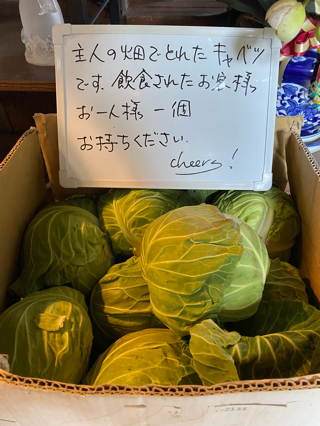 主人の畑でとれたキャベツ
です。飲食されたお客様
お一人様 一個
お持ちください.
cheers!